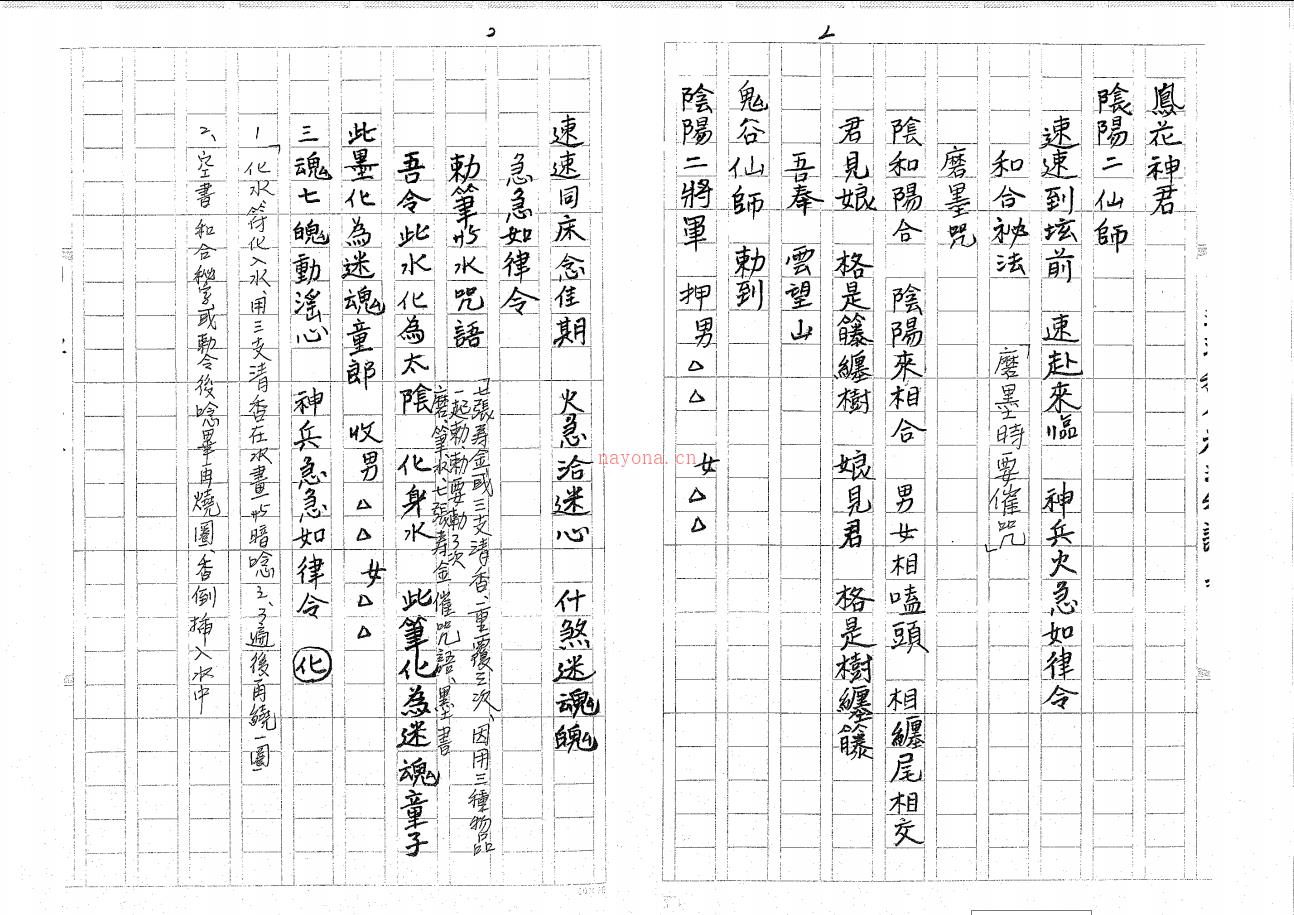 鳳花神君
陰陽二仙師
速速到坛前 速赴來臨 神兵火急如律令
和合祕法
磨墨咒 「磨墨時要催咒」
陰和陽合 陰陽來相合 男女相嗑頭 相纏尾相交
君見娘 格是籐纏樹 娘見君 格是樹纏籐
吾奉 雲望山
鬼谷仙師 勅到
陰陽二將軍 押男△△ 女△△
速速同床念佳期 火急洽迷心 什煞迷魂魄
急急如律令
勅筆水咒語
「七張寿金或三支清香、重覆三次、因用三種物品
一起勅、勅要勅3次
磨筆水、七張壽金、催咒語、墨書
吾令此水化為太陰 化身水 此筆化為迷魂童子
此墨化為迷魂童郎 收男△△ 女△△
三魂七魄動滛心 神兵急急如律令 化
1「化水符化入水、用三支清香在水畫暗唸2、3遍後再繞一圈」
2、空書 和合秘字或勅令後唸畢再燒圈、香倒插入水中
nayona.cn